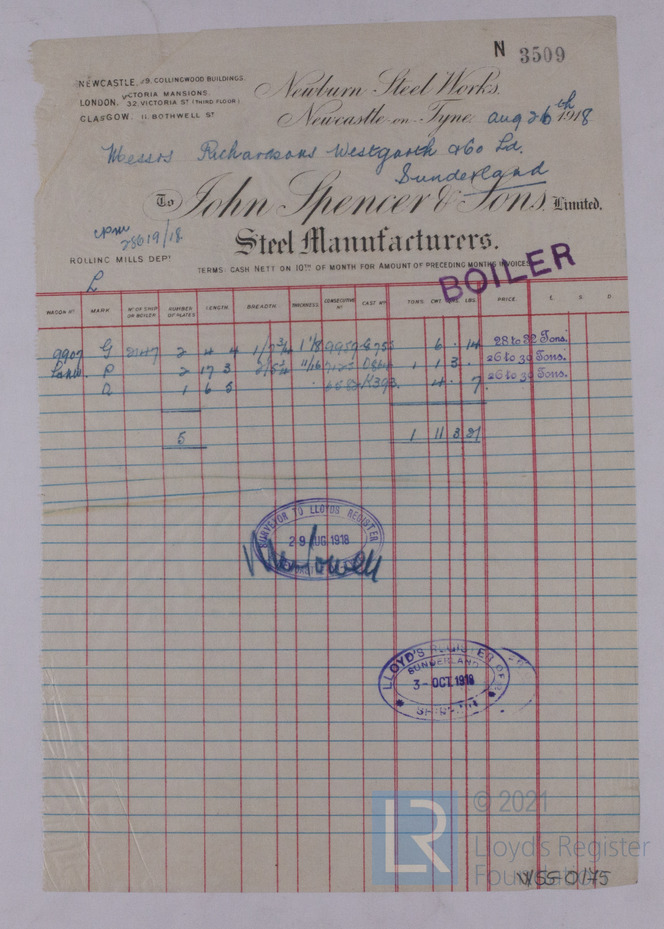 N 3509
NEWCASTLE, 19, COLLINGWOOD BUILDINGS.
LONDON, VICTORIA MANSIONS, 32, VICTORIA ST (THIRD FLOOR).
GLASGOW. 11, BOTHWELL ST
Newburn Steel Works.
Newcastle-on-Tyne Aug 26th 1918
Messrs Richardsons Westgarth & Co Ld.
Sunderland
To John Spencer & Sons, Limited.
28619/18
Steel Manufacturers.
ROLLING MILLS DEPT
TERMS: CASH NETT ON 10TH OF MONTH FOR AMOUNT OF PRECEDING MONTHS INVOICES
BOILER
L
WAGON NO. MARK. NO OF SHIP OR BOILER NUMBER OF PLATES LENGTH. BREADTH. THICKNESS. CONSECUTIVE NO CAST NO TONS CWT QRS. LBS. PRICE. £ S. D.
9907 G 2 4 4 1/7 3/4 1 1/8 6 . 14 28 to 32 Tons.
P 2 17 3 2/5 3/4 11/16 1 1 3 . 26 to 30 Tons.
1 6 5 4 . 7 26 to 30 Tons.
5 1 11 3 21
SURVEYOR TO LLOYDS REGISTER
29 AUG 1918
LLOYD'S REGISTER OF
SUNDERLAND
3 - OCT. 1918
SHIPPING
LR © 2021
Lloyd's Register
Foundation
WSS-0175